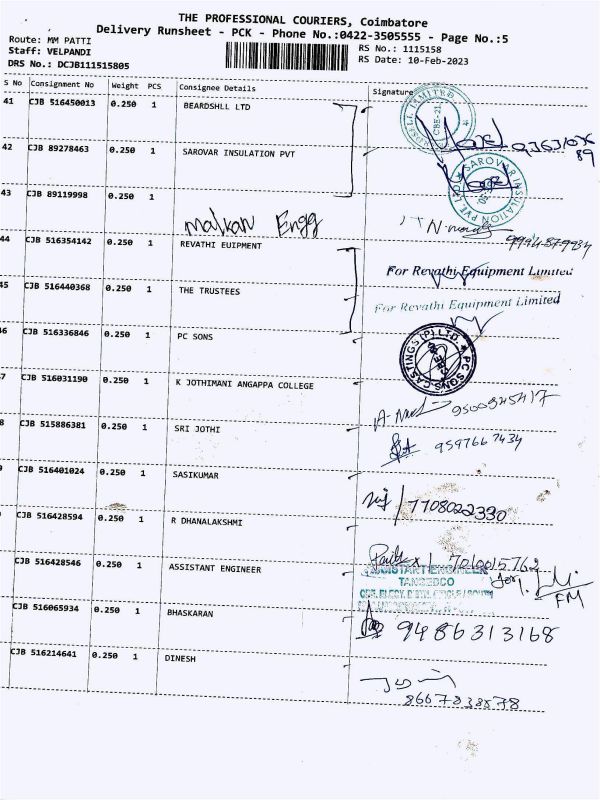 THE PROFESSIONAL COURIERS, Coimbatore
Delivery Runsheet - PCK - Phone No.:0422-3505555 - Page No.:5
Route: MM PATTI
Staff: VELPANDI
RS No.: 1115158
DRS No.: DCJB111515805
RS Date: 10-Feb-2023
S No Consignment No Weight PCS Consignee Details Signature
41 CJB 516450013 0.250 1 BEARDSHLL LTD
CBE-21
42 CJB 89278463 0.250 1 SAROVAR INSULATION PVT
SAROVAR INSULATION PVT LTD
43 CJB 89119998 0.250 1
malkan Engg
9994879934
44 CJB 516354142 0.250 1 REVATHI EUIPMENT
For Revathi Equipment Limited
45 CJB 516440368 0.250 1 THE TRUSTEES
For Revathi Equipment Limited
46 CJB 516336846 0.250 1 PC SONS
PC SONS CASTINGS (P) LTD.
7 CJB 516031190 0.250 1 K JOTHIMANI ANGAPPA COLLEGE
9500945417
8 CJB 515886381 0.250 1 SRI JOTHI
9597667434
9 CJB 516401024 0.250 1 SASIKUMAR
7708022330
CJB 516428594 0.250 1 R DHANALAKSHMI
7010015762
CJB 516428546 0.250 1 ASSISTANT ENGINEER
ASSISTANT ENGINEER
TANGEDCO
for
FM
CJB 516065934 0.250 1 BHASKARAN
9486313168
CJB 516214641 0.250 1 DINESH
8667838578